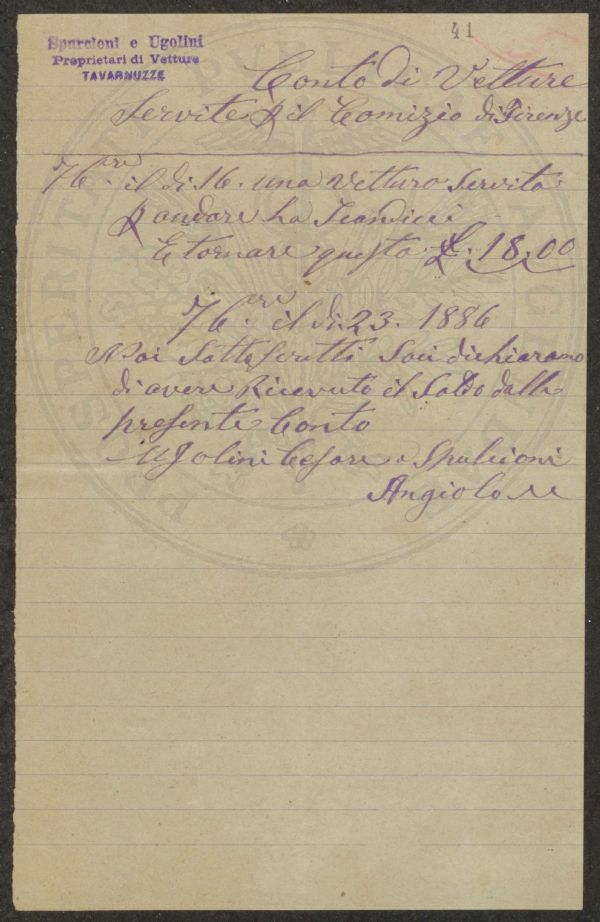 41
Spurcioni e Ugolini
Proprietari di Vetture
TAVARNUZZE
Conto di Vetture
Servite p il Comizio di Firenze
76.re il di 16. una Vetturo Servita
p andare ha Scandicci
E tornare questo £. 18,00
76.re il di 23. 1886
Noi Sotto Scritti Soci dichiaramo
di avere Ricevuto il Saldo dalla
presente Conto
Ugolini Cesare e Spulcioni
Angiolo